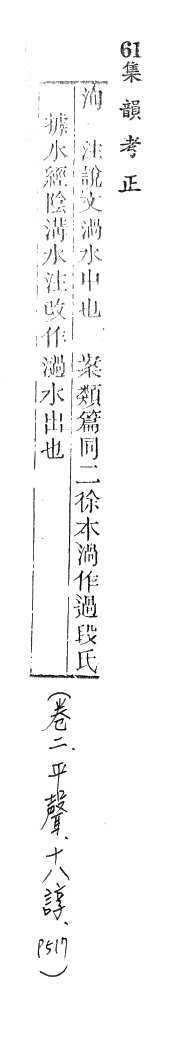 61集韻考正
洵 注說文渦水中也 案類篇同二徐本渦作過段氏
據水經陰溝水注改作渦水出也
(卷二、平聲、十八諄、P517)